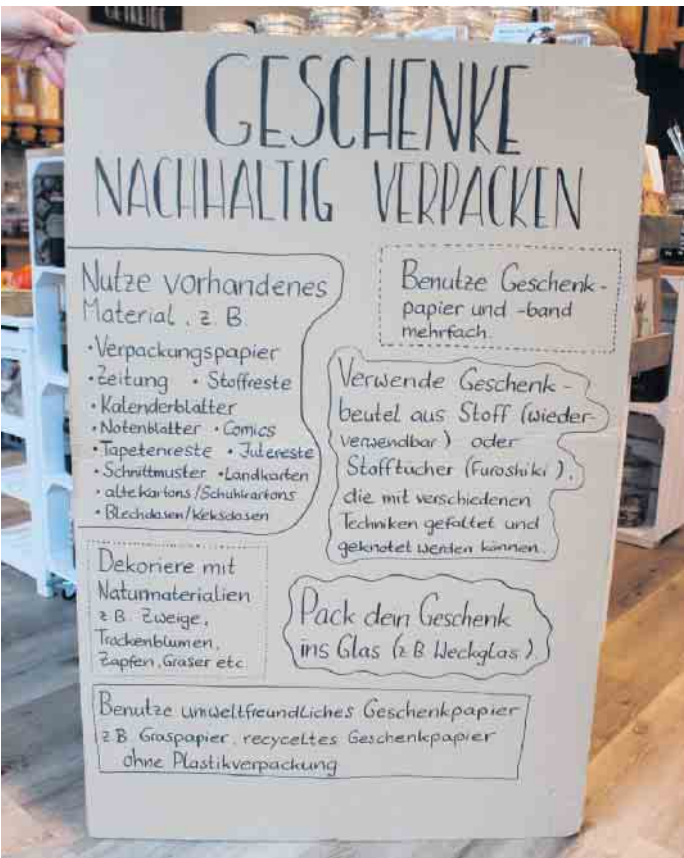 GETREIDE
GESCHENKE
NACHHALTIG VERPACKEN
Nutze vorhandenes
Material, z. B
•Verpackungspapier
•Zeitung • Stoffreste
•Kalenderblätter
•Notenblätter •Comics
•Tapetenreste • Jutereste
•Schnittmuster •Landkarten
•alte Kartons/Schuhkartons
•Blechdosen/Keksdosen
Benutze Geschenk-
papier und -band
mehrfach.
Verwende Geschenk-
beutel aus Stoff (wieder-
verwendbar) oder
Stofftücher (Furoshiki),
die mit verschiedenen
Techniken gefaltet und
geknotet werden können.
Dekoriere mit
Naturmaterialien
z.B. Zweige,
Trockenblumen,
Zapfen, Gräser etc.
Pack dein Geschenk
ins Glas (z.B Weckglas)
Benutze umweltfreundliches Geschenkpapier
z.B. Graspapier, recyceltes Geschenkpapier
ohne Plastikverpackung